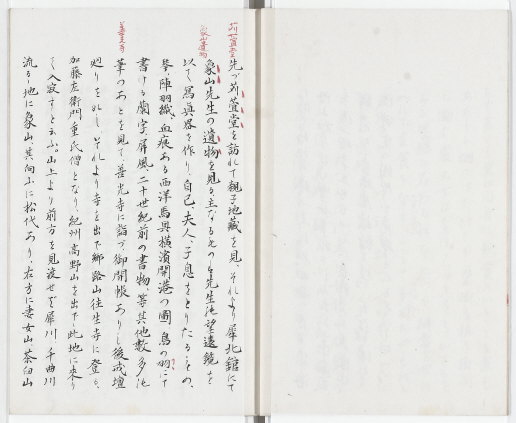 苅萱堂
先づ苅萱堂を訪れて親子地蔵を見、それより犀北館にて
象山遺物
象山先生の遺物を見る、主なるものは先生は望遠鏡を
以て、寫眞器を作り、自己、夫人、子息をとりたるもの、
琴、陣羽織、血痕ある西洋馬具、横濱開港の圖、鳥の羽にて
書ける蘭字屏風、二十世紀前の書物、等其他数多
善光寺
筆のあとを見て、善光寺に詣づ、御開帳ありし後戒壇
廻りをなし、それより寺を出て郷路山往生寺に登る、
加藤左衛門重氏僧となり、紀州高野山を出て此地に来り
て入寂すと云ふ。山上より前方を見渡せば犀川、千曲川
流るゝ地に象山其向ふに松代あり、右方に妻女山茶臼山